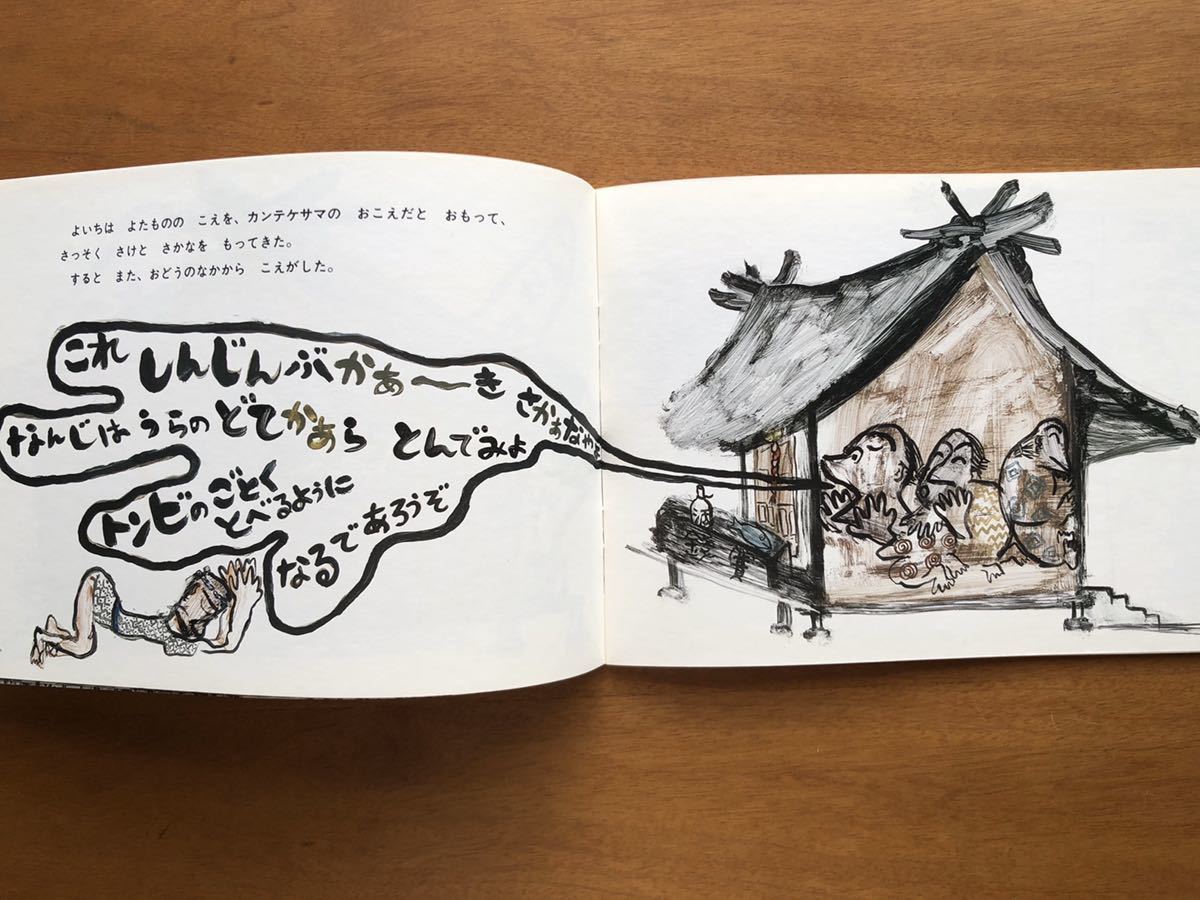 よいちは よたものの こえを、カンテケサマの おこえだと おもって、
さっそく さけと さかなを もってきた。
すると また、おどうのなかから こえがした。
これ しんじんぶかぁーき さかぁなやよ
なんじは うらの どてかぁら とんでみよ
トンビのごとく
とべるように
なるであろうぞ
酒